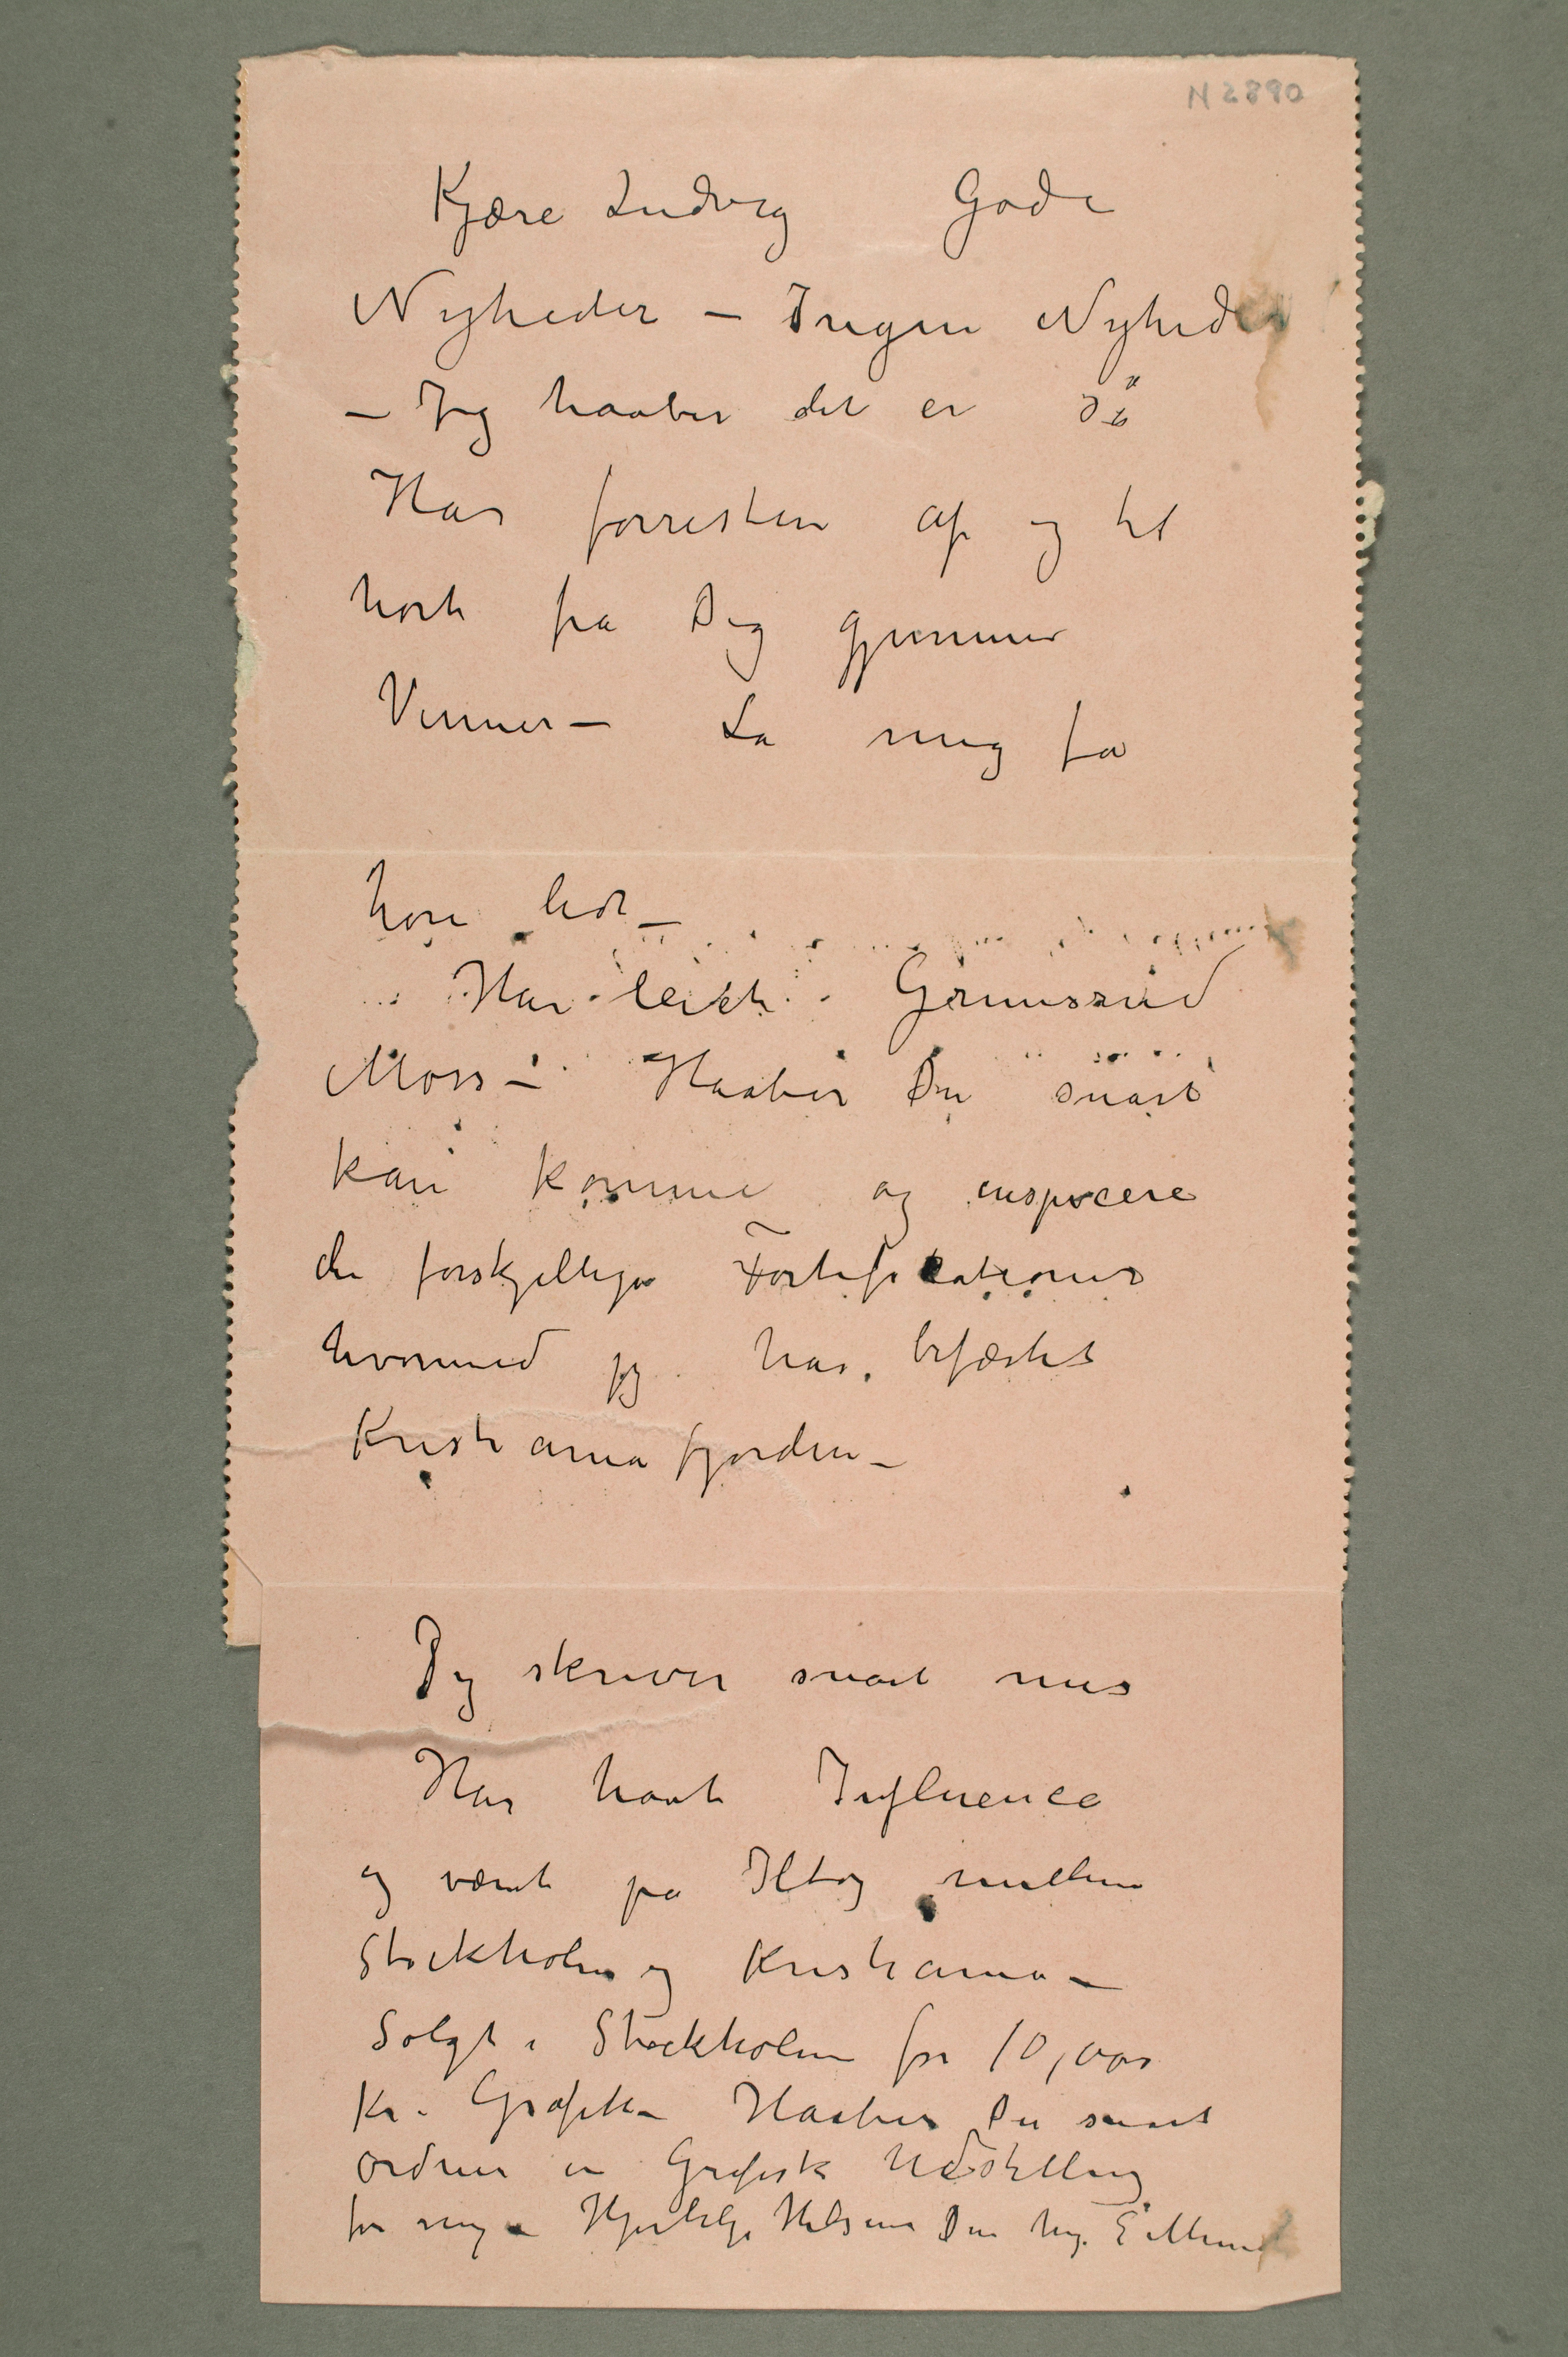 N 2890
Kjære Ludvig Gode
Nyheder – Ingen Nyheder
– Jeg haaber det er så
Har forresten af og til
hørt fra Dig gjennem
Venner – La mig få
høre lidt –
Har leiet Grimsrød
Moss – Haaber Du snart
kan komme og inspicere
de forskjellige Fortifikationer
hvormed jeg har befæstet
Kristianiafjorden –
Jeg skriver snart mer
Har havt Influence
og været på Iltog mellem
Stockholm og Kristiania –
Solgt i Stockholm for 10,000
Kr. Grafik – Haaber Du snart
ordner en Grafisk Udstilling
for mig – Hjertelig Hilsen Din hng. E Munch